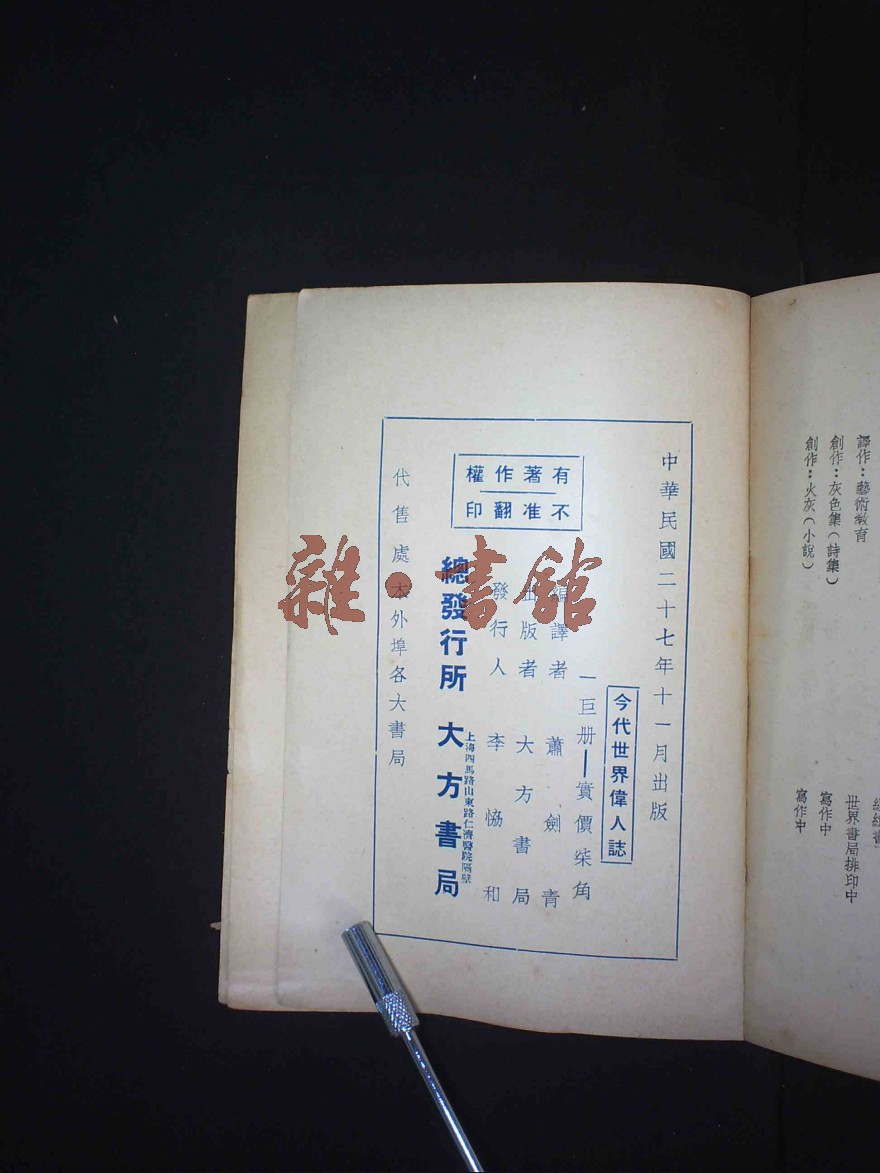 譯作：藝術教育
世界書局排印中
創作：灰色集（詩集）
寫作中
創作：火灰（小說）
寫作中
中華民國二十七年十一月出版
今代世界偉人誌
一巨册—實價柒角
編譯者 蕭劍青
出版者 大方書局
發行人 李恊和
有著作權
不准翻印
總發行所 大方書局
上海四馬路山東路仁濟醫院隔壁
代售處 本外埠各大書局
雜·書館